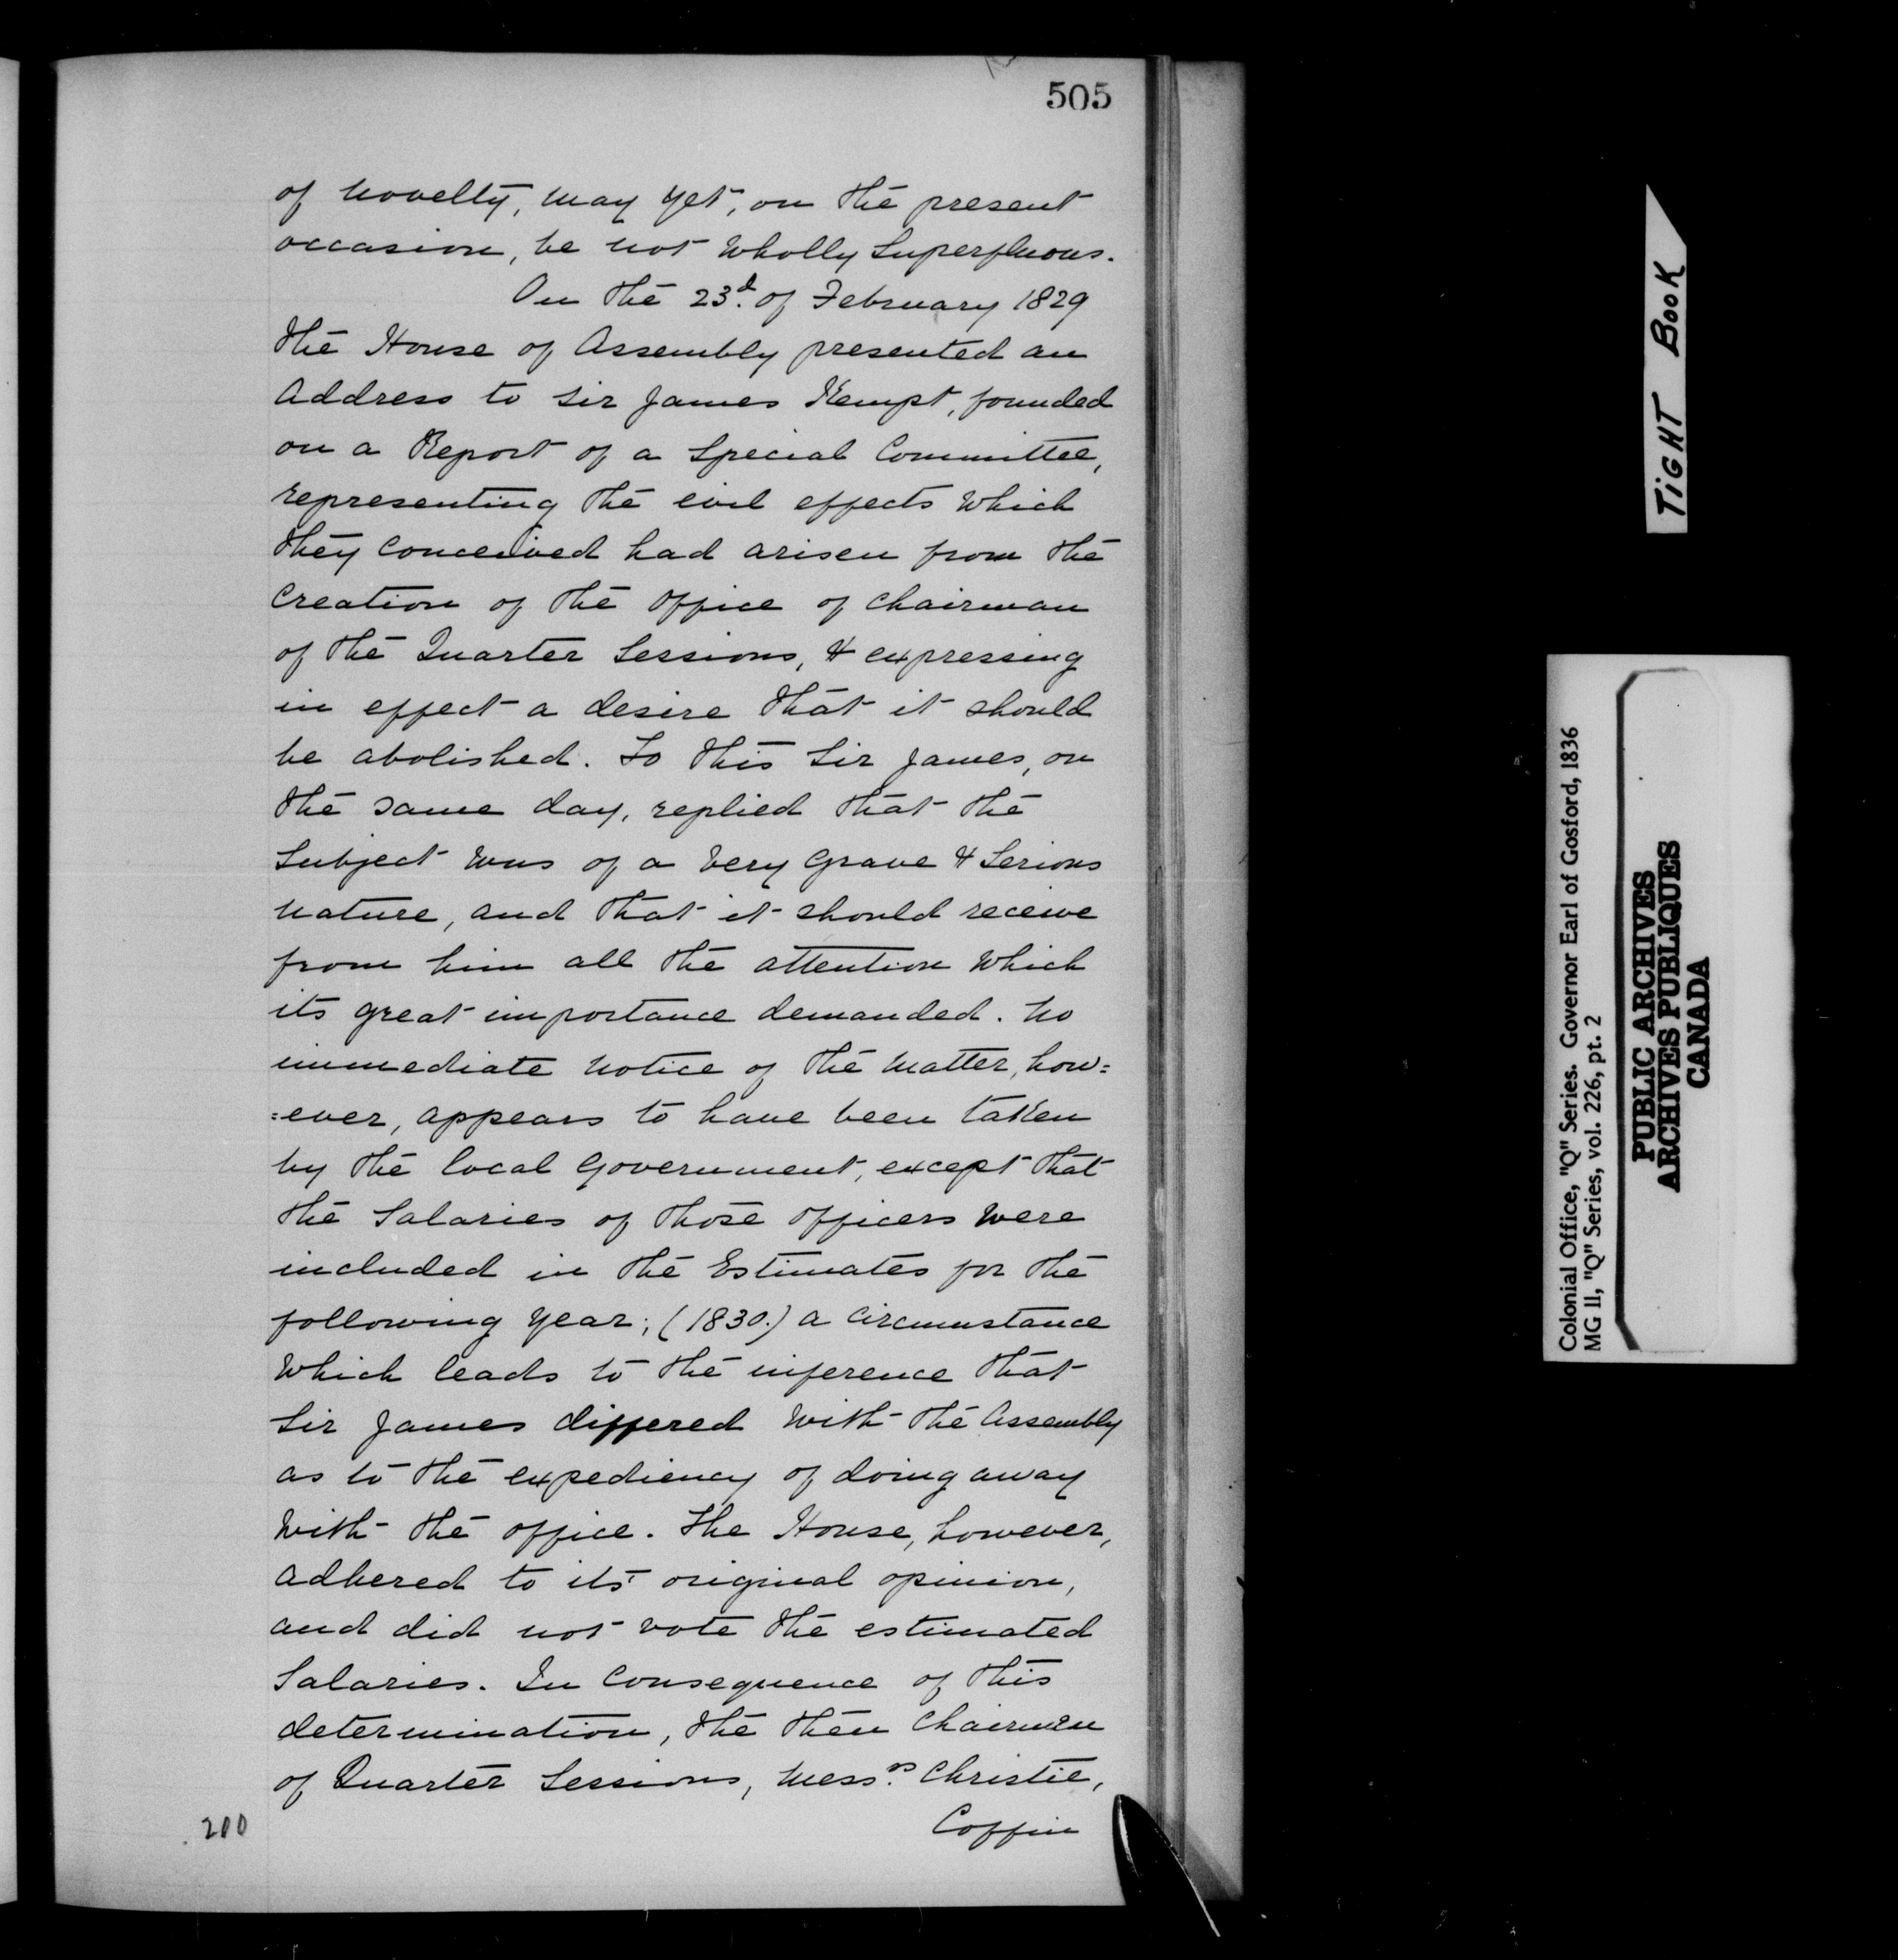 505
of novelty, may yet, on the present
occasion, be not wholly superfluous.
On the 23d. of February 1829
the House of Assembly presented an
Address to Sir James Kempt, founded
on a Report of a Special Committee,
representing the evil effects which
they conceived had arisen from the
creation of the office of Chairman
of the Quarter Sessions, & expressing
in effect a desire that it should
be abolished. To this Sir James, on
the same day, replied that the
subject was of a very grave & serious
nature, and that it should receive
from him all the attention which
its great importance demanded. No
immediate notice of the matter, how=
=ever, appears to have been taken
by the local Government, except that
the Salaries of those officers were
included in the Estimates for the
following year; (1830.) a circumstance
which leads to the inference that
Sir James differed with the Assembly
as to the expediency of doing away
with the office. The House, however,
adhered to its original opinion,
and did not vote the estimated
Salaries. In consequence of this
determination, the then Chairmen
of Quarter Sessions, Messrs. Christie,
Coffin
200
TIGHT BOOK
Colonial Office, "Q" Series. Governor Earl of Gosford, 1836
MG 11, "Q" Series, vol. 226, pt. 2
PUBLIC ARCHIVES
ARCHIVES PUBLIQUES
CANADA